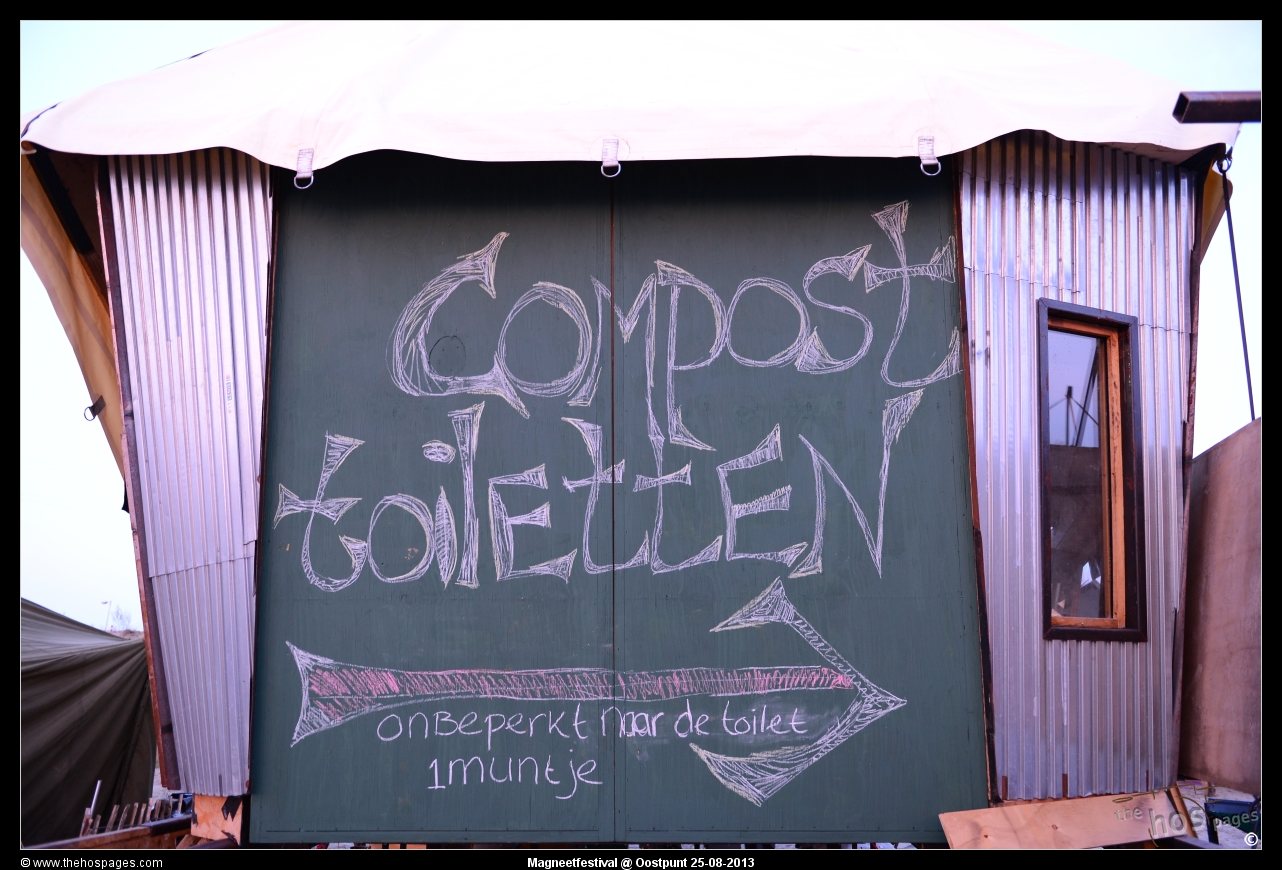 Compost
toilETTEN
onBeperkt naar de toilet
1 muntje
the hos pages
©
© www.thehospages.com
Magneetfestival @ Oostpunt 25-08-2013